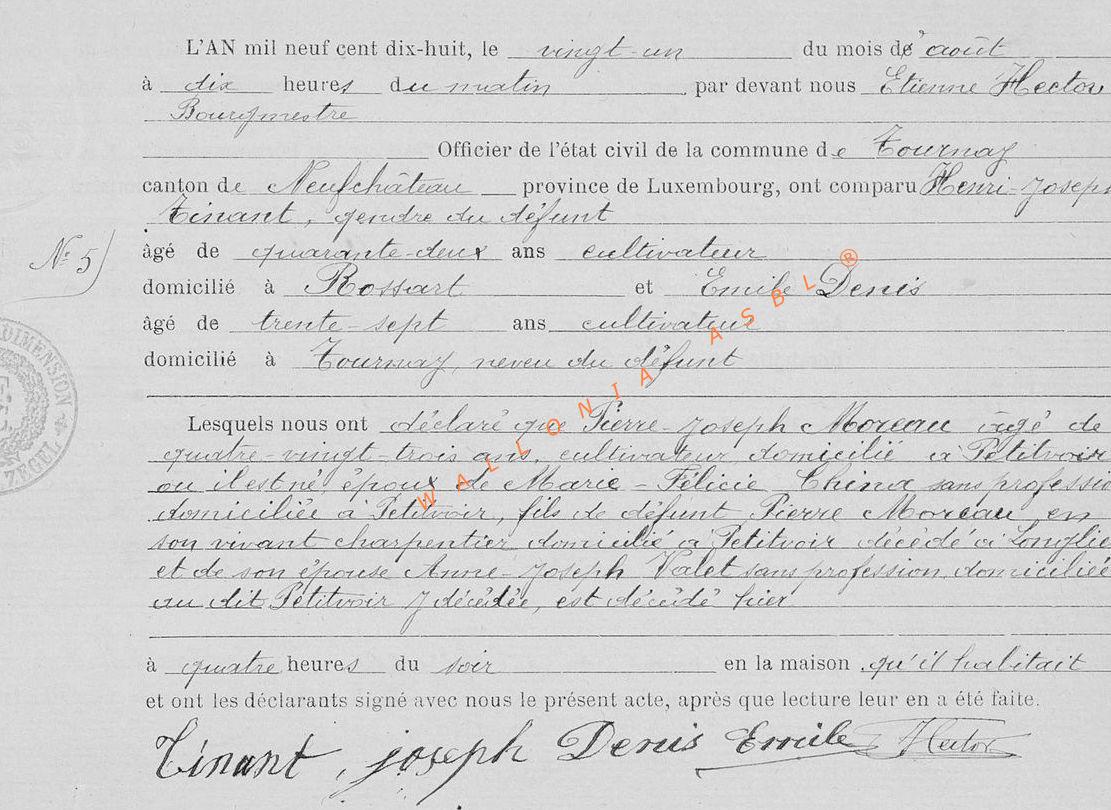 L'AN mil neuf cent dix-huit, le vingt-un du mois de août
à dix heures du matin par devant nous Etienne Hector
Bourgmestre
Officier de l'état civil de la commune de Tournay
canton de Neufchâteau province de Luxembourg, ont comparu Henri-Joseph
Tinant, gendre du défunt
N° 5
âgé de quarante-deux ans cultivateur
domicilié à Rossart et Emile Denis
âgé de trente-sept ans cultivateur
domicilié à Tournay, neveu du défunt
Lesquels nous ont déclaré que Pierre-Joseph Moreau âgé de
quatre-vingt-trois ans, cultivateur domicilié à Petitvoir
où il est né, époux de Marie-Félicie sans professio
domiciliée à Petitvoir, fils de défunt Pierre Moreau, en
son vivant charpentier domicilié à Petitvoir décédé à Longlie
et de son épouse Anne-Joseph Valet sans profession, domiciliée
au dit Petitvoir y décédée, est décédé hier
à quatre heures du soir en la maison qu'il habitait
et ont les déclarants signé avec nous le présent acte, après que lecture leur en a été faite.
Tinant, joseph Denis Emile Hector
WALLONIA ASBL ®
DIMENSION
ZEGEL